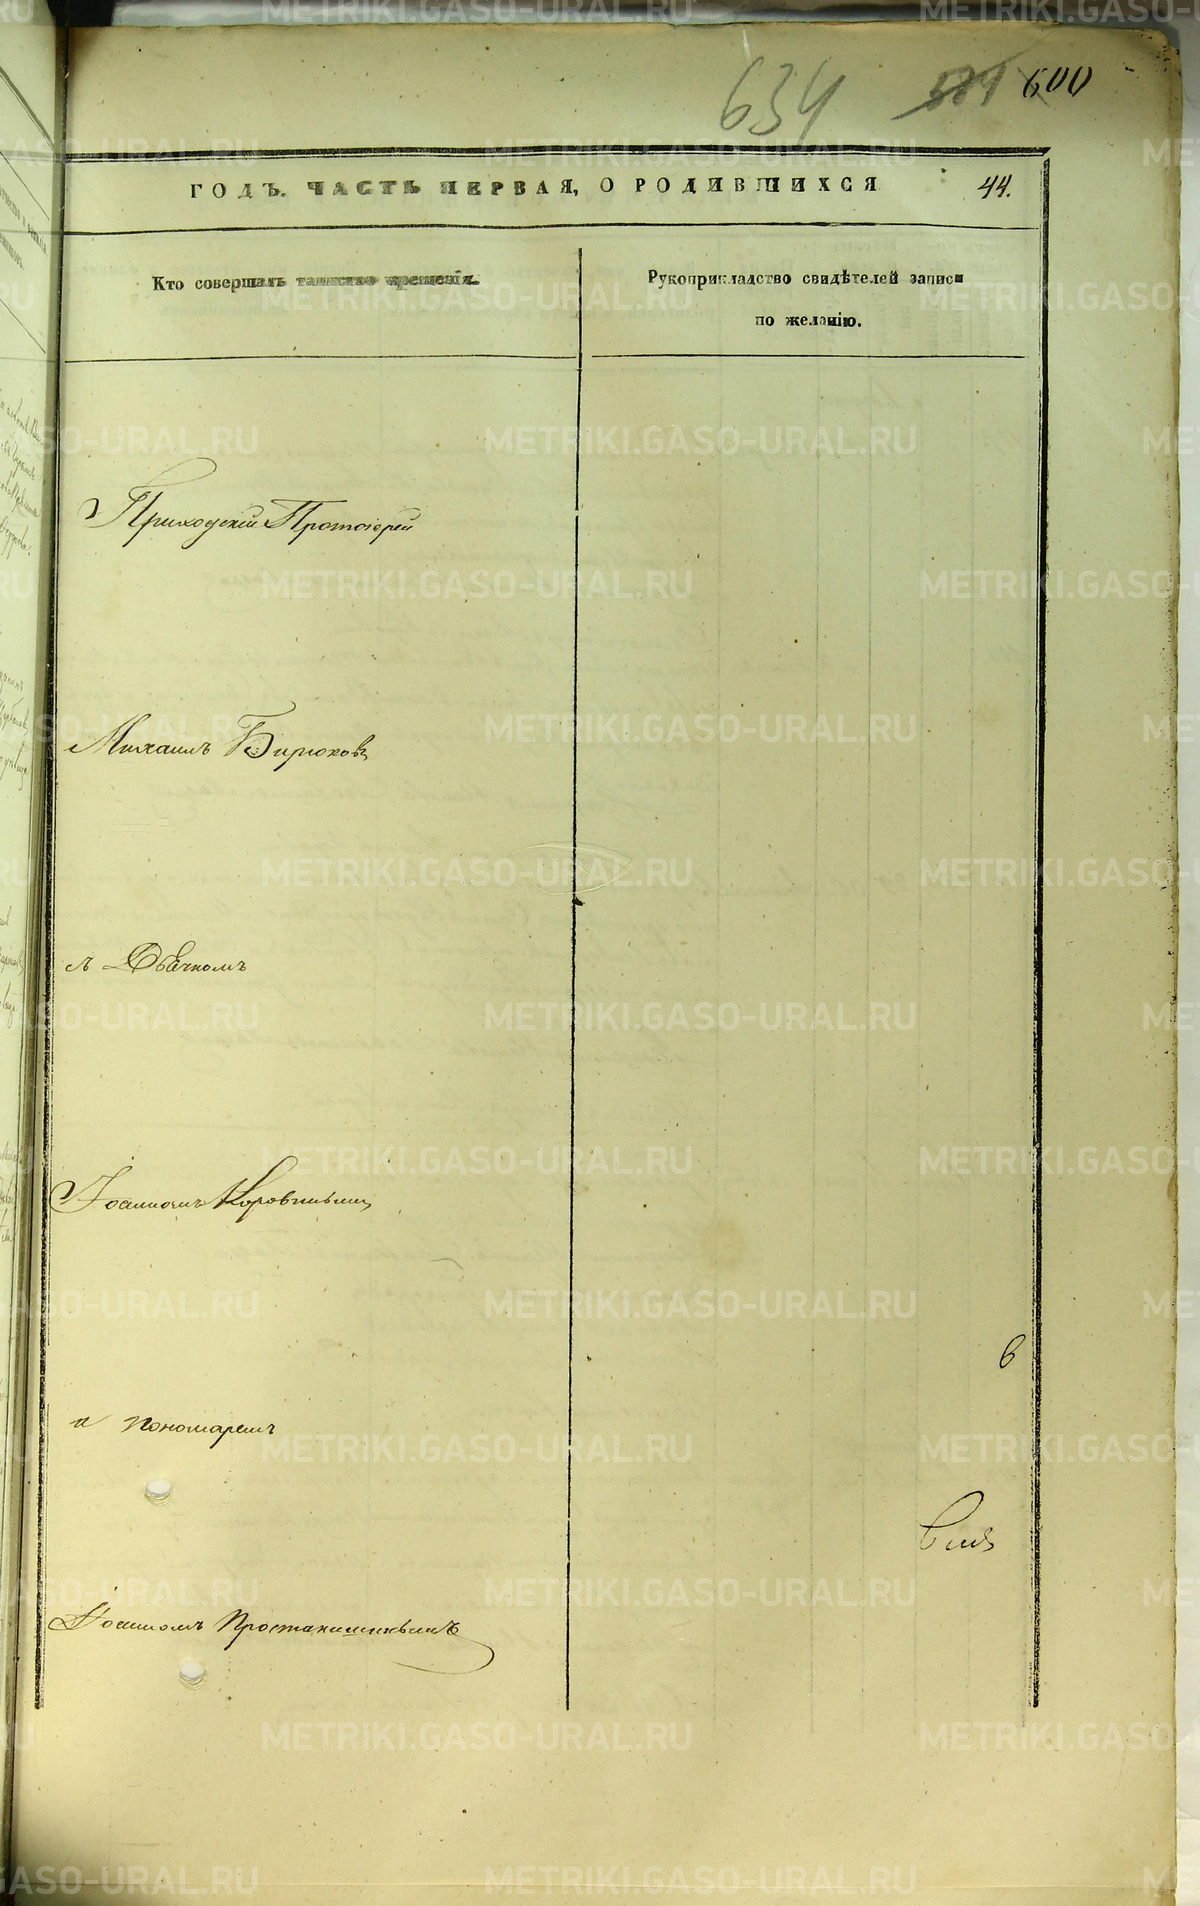 634 600
ГОДЪ. ЧАСТЬ ПЕРВАЯ, О РОДИВШИХСЯ 44.
Кто совершалъ таинство крещенія.
Рукоприкладство свидѣтелей записи
по желанію.
Приходскій Протоіерей
Михаилъ Бирюковъ
съ Дьячкомъ
Іоанномъ Коровинымъ
6
и Пономаремъ
Іоанномъ
METRIKI.GASO-URAL.RU